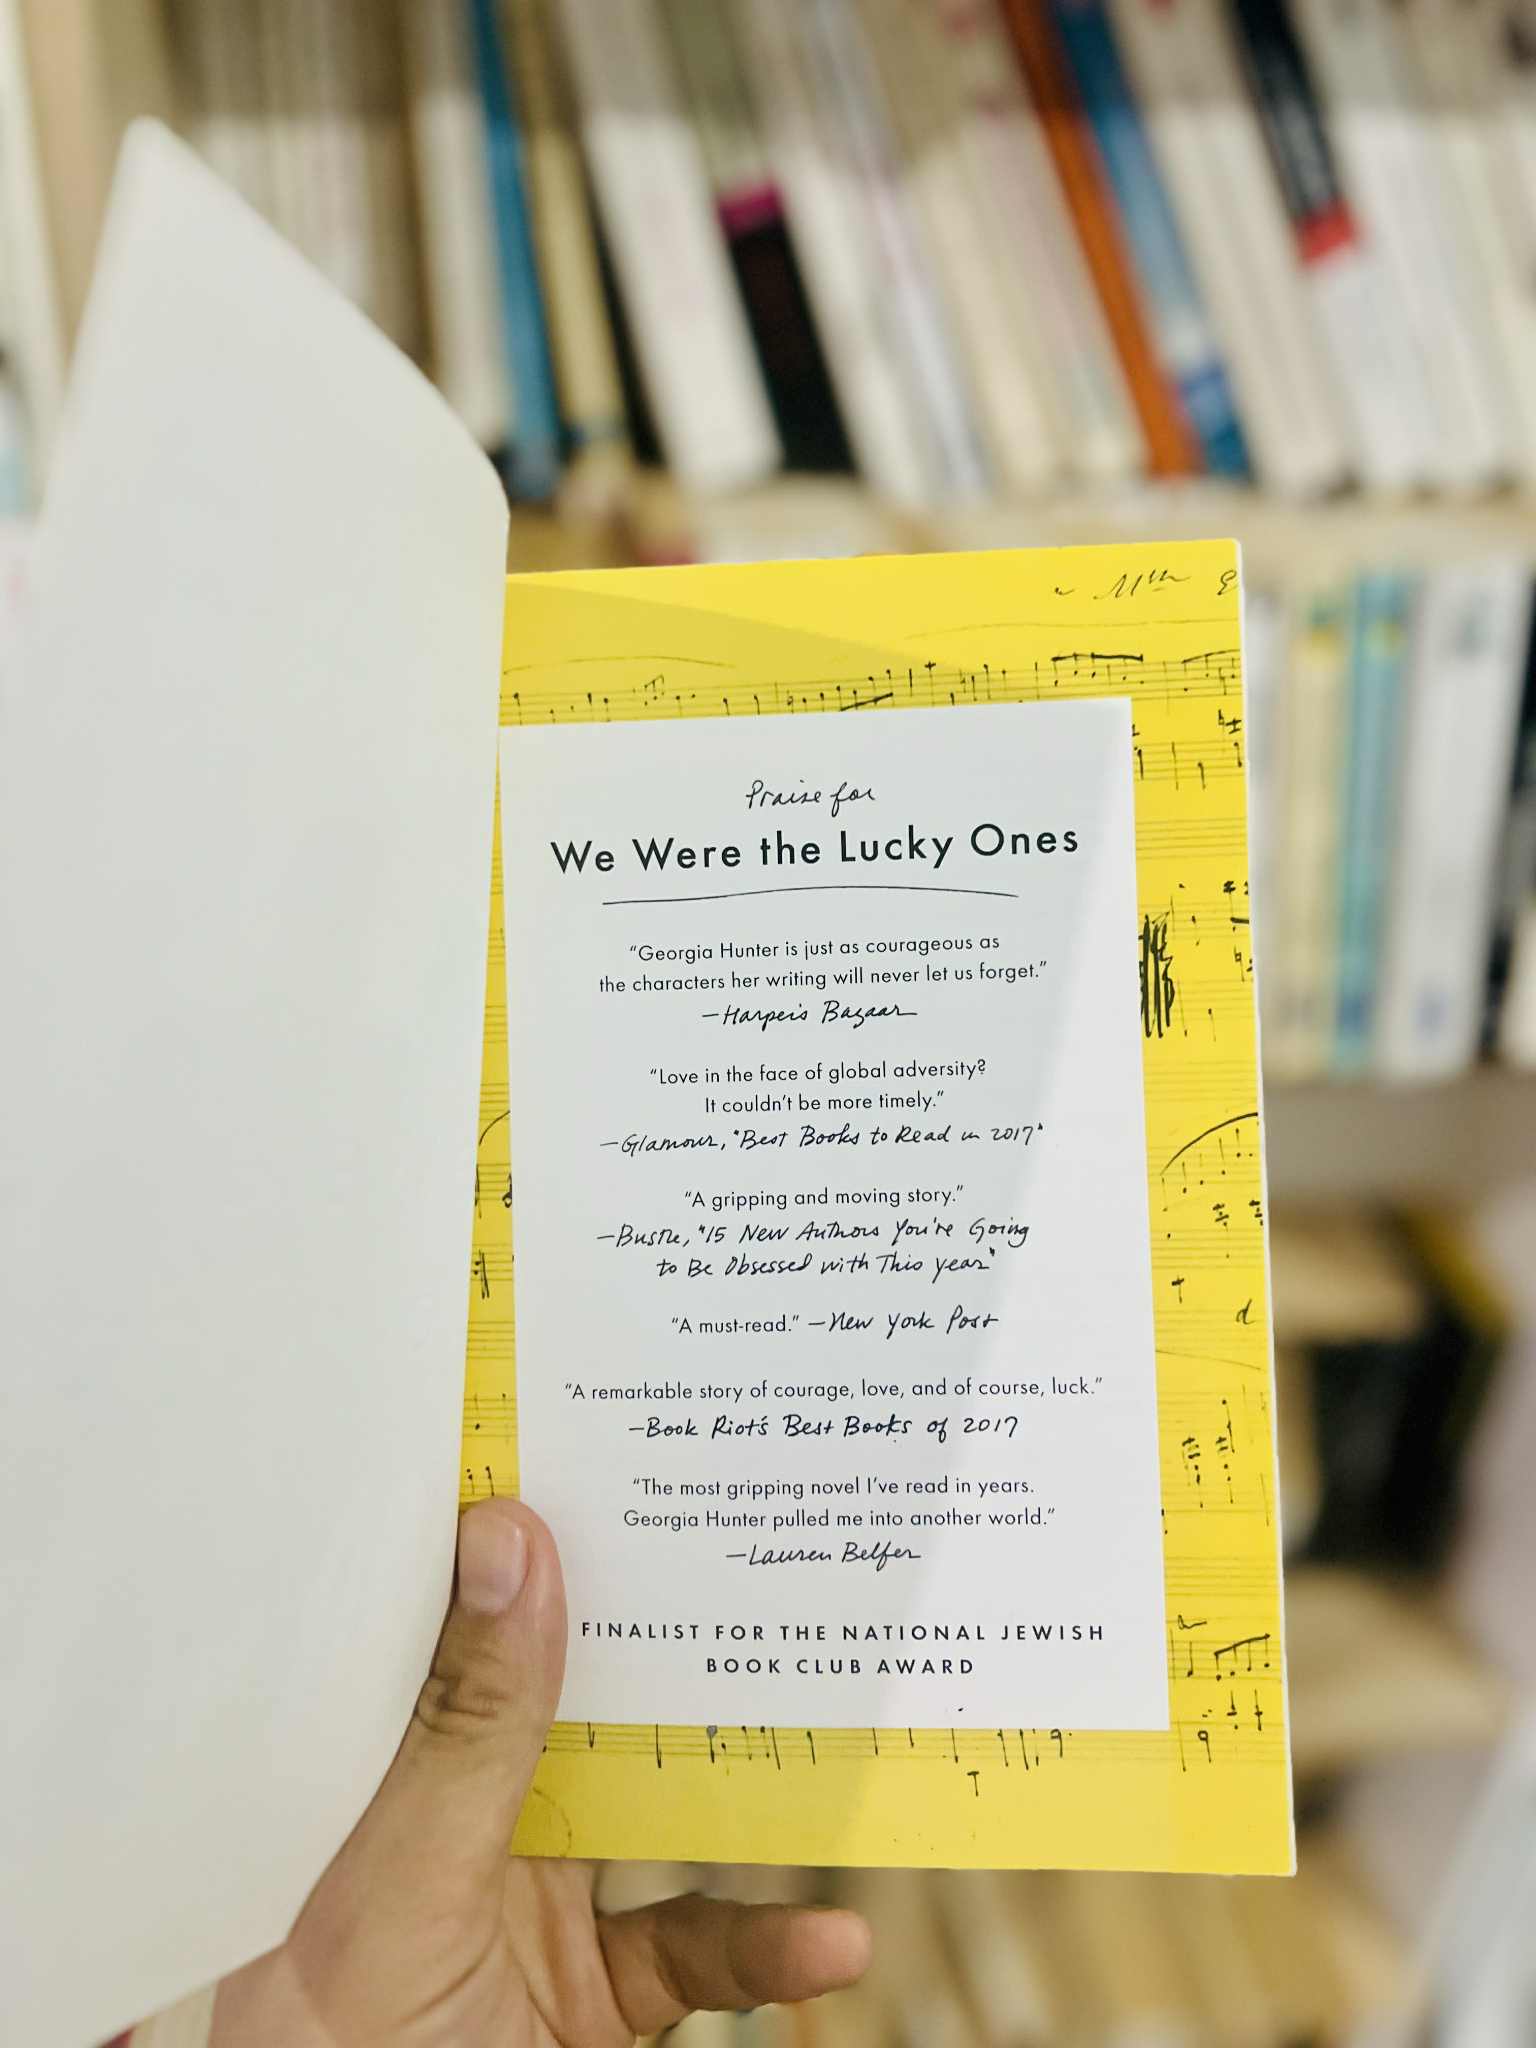 Praise for
We Were the Lucky Ones
“Georgia Hunter is just as courageous as
the characters her writing will never let us forget.”
—Harper's Bazaar
“Love in the face of global adversity?
It couldn’t be more timely.”
—Glamour, "Best Books to Read in 2017"
“A gripping and moving story.”
—Bustle, "15 New Authors You're Going
to Be Obsessed with This Year"
“A must-read.” —New York Post
“A remarkable story of courage, love, and of course, luck.”
—Book Riot's Best Books of 2017
“The most gripping novel I’ve read in years.
Georgia Hunter pulled me into another world.”
—Lauren Belfer
FINALIST FOR THE NATIONAL JEWISH
BOOK CLUB AWARD